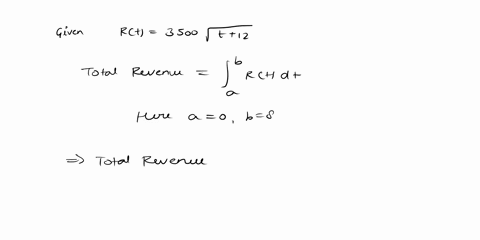 Given R(t) = 3500 √(t+12)
Total Revenue = ∫_a^b R(t) dt
Here a=0, b=8
⇒ Total Revenue